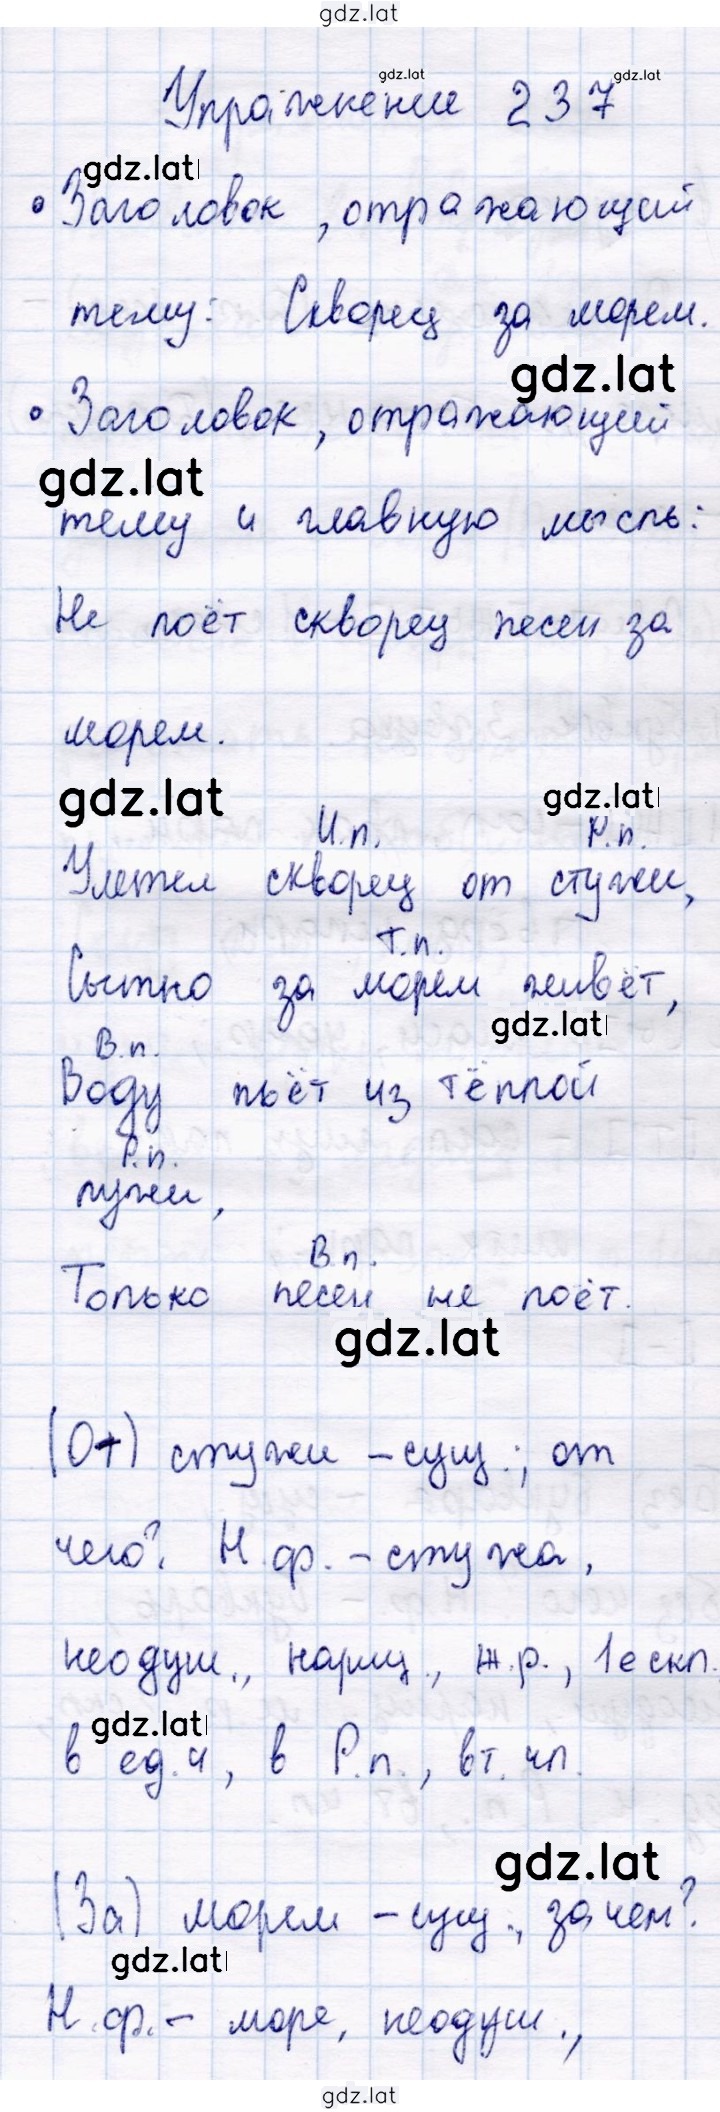 gdz.lat
gdz.lat gdz.lat
Упражнение 237
gdz.lat
• Заголовок, отражающий
тему: Скворец за морем.
gdz.lat
• Заголовок, отражающий
gdz.lat
тему и главную мысль:
Не поёт скворец песен за
морем.
gdz.lat gdz.lat
И.п. Р.п.
Улетел скворец от стужи,
Т.п.
Сытно за морем живёт,
gdz.lat
В.п.
Воду пьёт из тёплой
Р.п.
лужи,
В.п.
Только песен не поёт.
gdz.lat
(От) стужи – сущ.; от
чего? Н.ф. – стужа,
неодуш., нариц., ж.р., 1е скл.
gdz.lat
в ед.ч, в Р.п., вт. чл.
gdz.lat
(За) морем – сущ., за чем?
gdz.lat
Н.ф. – море, неодуш.,
gdz.lat